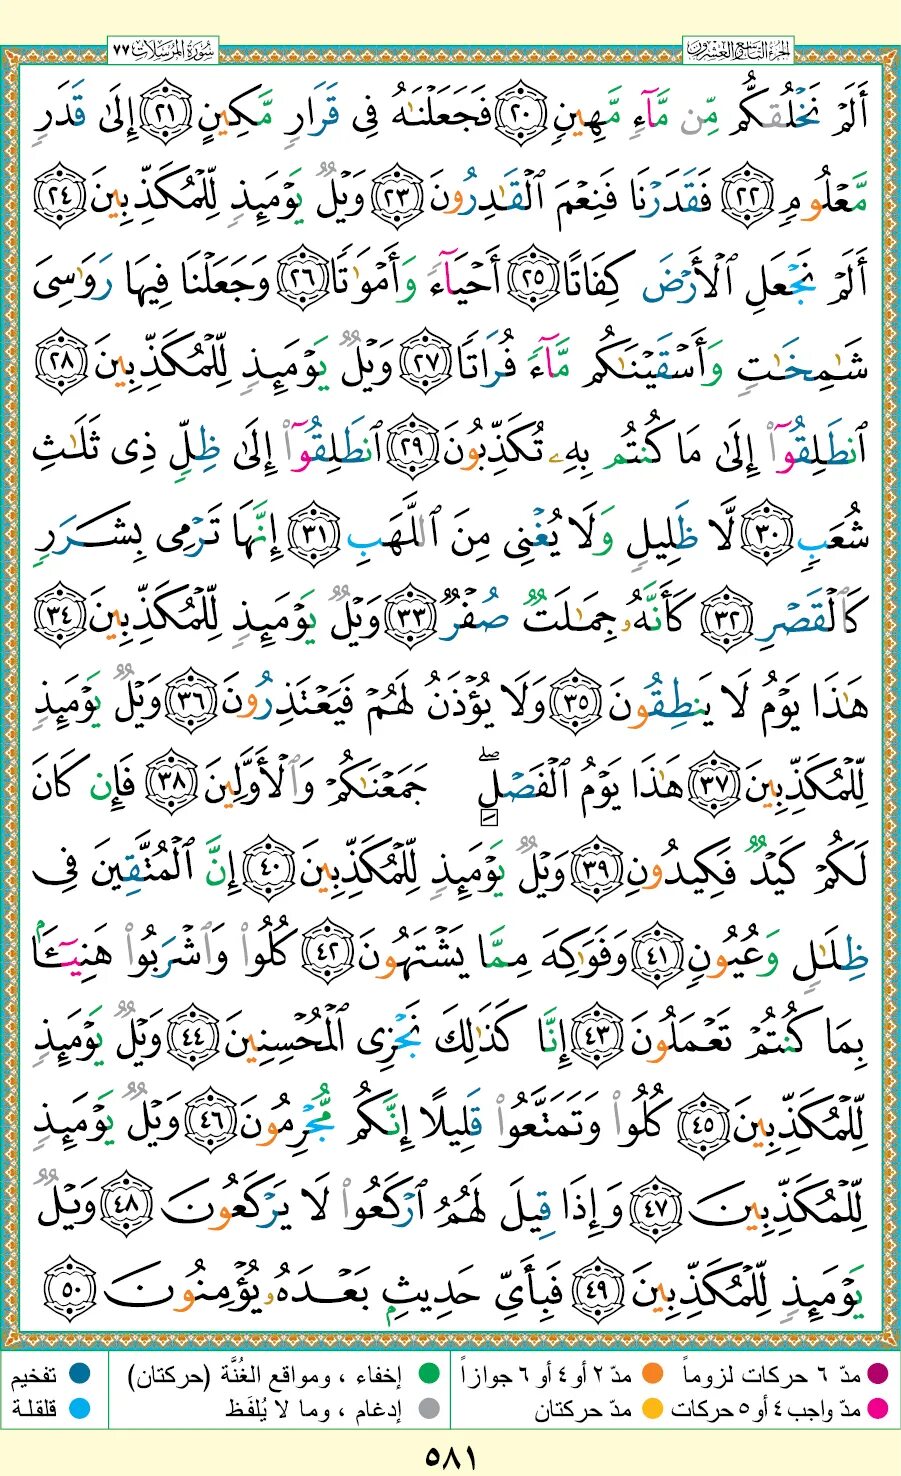 سُورَةُ المُرۡسَلَات ٧٧
الجزء التاسع والعشرون
أَلَمۡ نَخۡلُقكُّم مِّن مَّآءٖ مَّهِينٖ ٢٠ فَجَعَلۡنَٰهُ فِي قَرَارٖ مَّكِينٍ ٢١ إِلَىٰ قَدَرٖ
مَّعۡلُومٖ ٢٢ فَقَدَرۡنَا فَنِعۡمَ ٱلۡقَٰدِرُونَ ٢٣ وَيۡلٞ يَوۡمَئِذٖ لِّلۡمُكَذِّبِينَ ٢٤
أَلَمۡ نَجۡعَلِ ٱلۡأَرۡضَ كِفَاتًا ٢٥ أَحۡيَآءٗ وَأَمۡوَٰتٗا ٢٦ وَجَعَلۡنَا فِيهَا رَوَٰسِيَ
شَٰمِخَٰتٖ وَأَسۡقَيۡنَٰكُم مَّآءٗ فُرَاتٗا ٢٧ وَيۡلٞ يَوۡمَئِذٖ لِّلۡمُكَذِّبِينَ ٢٨
ٱنطَلِقُوٓاْ إِلَىٰ مَا كُنتُم بِهِۦ تُكَذِّبُونَ ٢٩ ٱنطَلِقُوٓاْ إِلَىٰ ظِلّٖ ذِي ثَلَٰثِ
شُعَبٖ ٣٠ لَّا ظَلِيلٖ وَلَا يُغۡنِي مِنَ ٱللَّهَبِ ٣١ إِنَّهَا تَرۡمِي بِشَرَرٖ
كَٱلۡقَصۡرِ ٣٢ كَأَنَّهُۥ جِمَٰلَتٞ صُفۡرٞ ٣٣ وَيۡلٞ يَوۡمَئِذٖ لِّلۡمُكَذِّبِينَ ٣٤
هَٰذَا يَوۡمُ لَا يَنطِقُونَ ٣٥ وَلَا يُؤۡذَنُ لَهُمۡ فَيَعۡتَذِرُونَ ٣٦ وَيۡلٞ يَوۡمَئِذٖ
لِّلۡمُكَذِّبِينَ ٣٧ هَٰذَا يَوۡمُ ٱلۡفَصۡلِۖ جَمَعۡنَٰكُمۡ وَٱلۡأَوَّلِينَ ٣٨ فَإِن كَانَ
لَكُمۡ كَيۡدٞ فَكِيدُونِ ٣٩ وَيۡلٞ يَوۡمَئِذٖ لِّلۡمُكَذِّبِينَ ٤٠ إِنَّ ٱلۡمُتَّقِينَ فِي
ظِلَٰلٖ وَعُيُونٖ ٤١ وَفَوَٰكِهَ مِمَّا يَشۡتَهُونَ ٤٢ كُلُواْ وَٱشۡرَبُواْ هَنِيٓـَٔۢا
بِمَا كُنتُمۡ تَعۡمَلُونَ ٤٣ إِنَّا كَذَٰلِكَ نَجۡزِي ٱلۡمُحۡسِنِينَ ٤٤ وَيۡلٞ يَوۡمَئِذٖ
لِّلۡمُكَذِّبِينَ ٤٥ كُلُواْ وَتَمَتَّعُواْ قَلِيلًا إِنَّكُم مُّجۡرِمُونَ ٤٦ وَيۡلٞ يَوۡمَئِذٖ
لِّلۡمُكَذِّبِينَ ٤٧ وَإِذَا قِيلَ لَهُمُ ٱرۡكَعُواْ لَا يَرۡكَعُونَ ٤٨ وَيۡلٞ
يَوۡمَئِذٖ لِّلۡمُكَذِّبِينَ ٤٩ فَبِأَيِّ حَدِيثِۭ بَعۡدَهُۥ يُؤۡمِنُونَ ٥٠
مدّ ٦ حركات لزوماً مدّ ٢ أو ٤ أو ٦ جوازاً إخفاء ، ومواقع الغُنَّة (حركتان) تفخيم
مدّ واجب ٤ أو ٥ حركات مدّ حركتان إدغام ، وما لا يُلفَظ قلقلة
٥٨١